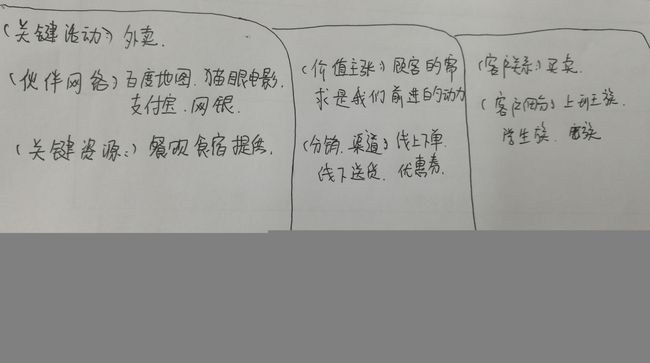 (关键活动) 外卖.
(伙伴网络) 百度地图. 猫眼电影.
支付宝. 网银.
(关键资源:) 餐 食宿提供.
(价值主张:) 顾客的需
求是我们前进的动力
(分销.渠道) 线上下单.
线下送货. 优惠券.
(客户关系:) 买卖.
(客户细分) 上班族.
学生族.